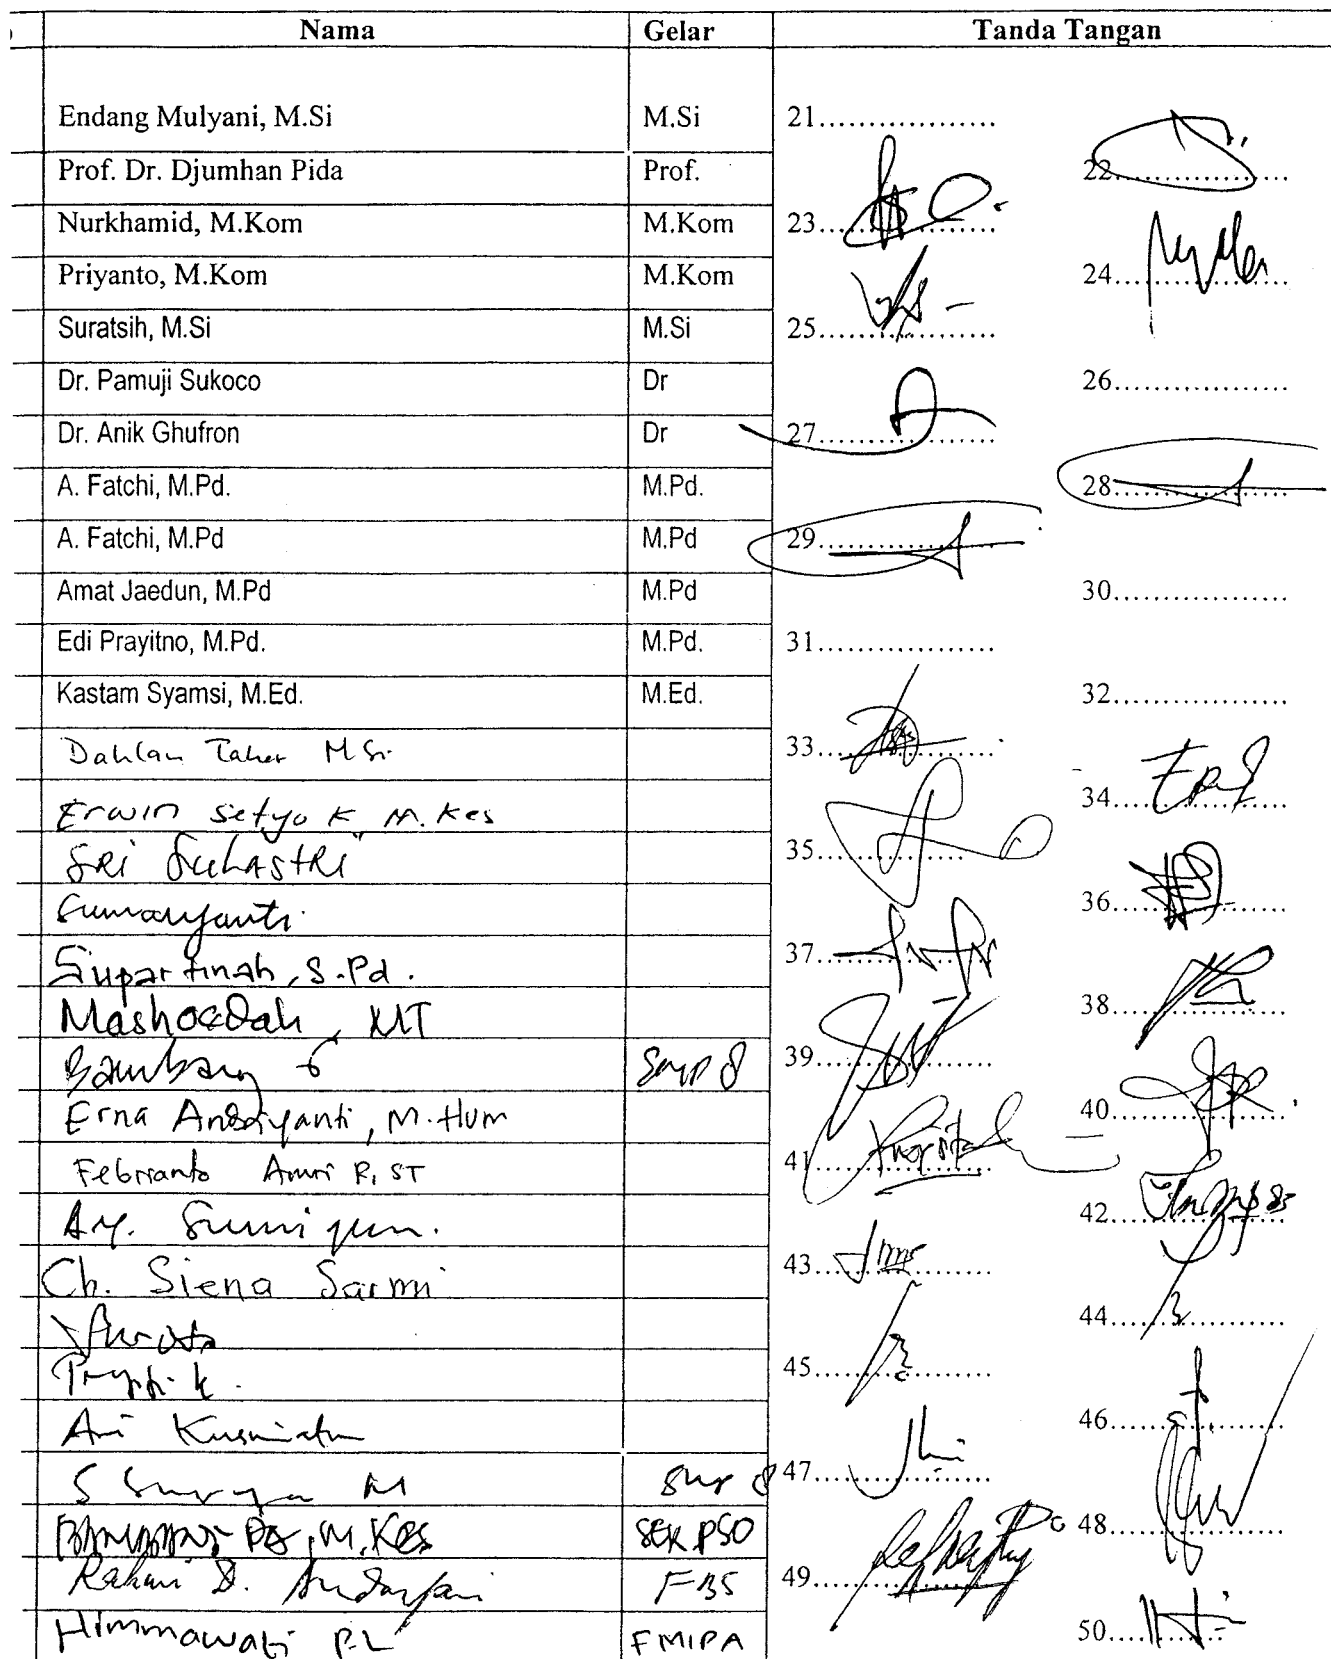 Nama Gelar Tanda Tangan
Endang Mulyani, M.Si M.Si 21..................
Prof. Dr. Djumhan Pida Prof. 22..................
Nurkhamid, M.Kom M.Kom 23..................
Priyanto, M.Kom M.Kom 24..................
Suratsih, M.Si M.Si 25..................
Dr. Pamuji Sukoco Dr 26..................
Dr. Anik Ghufron Dr 27..................
A. Fatchi, M.Pd. M.Pd. 28..................
A. Fatchi, M.Pd M.Pd 29..................
Amat Jaedun, M.Pd M.Pd 30..................
Edi Prayitno, M.Pd. M.Pd. 31..................
Kastam Syamsi, M.Ed. M.Ed. 32..................
Dahlan Taher M Si 33..................
Erwin Setyo K M.Kes 34..................
SRI SuhAStRI 35..................
Sumaryanti 36..................
Supartinah, S.Pd. 37..................
Mashoedah, MT 38..................
Bambang 39..................
Erna Andriyanti, M.Hum 40..................
Febrianto Amri R, ST 41..................
42..................
Ch. Siena Sarmi 43..................
44..................
45..................
Ari Kusmiatun 46..................
47..................
M.Kes 48..................
Rahmi D. Andayani FBS 49..................
Himmawati P.L FMIPA 50..................